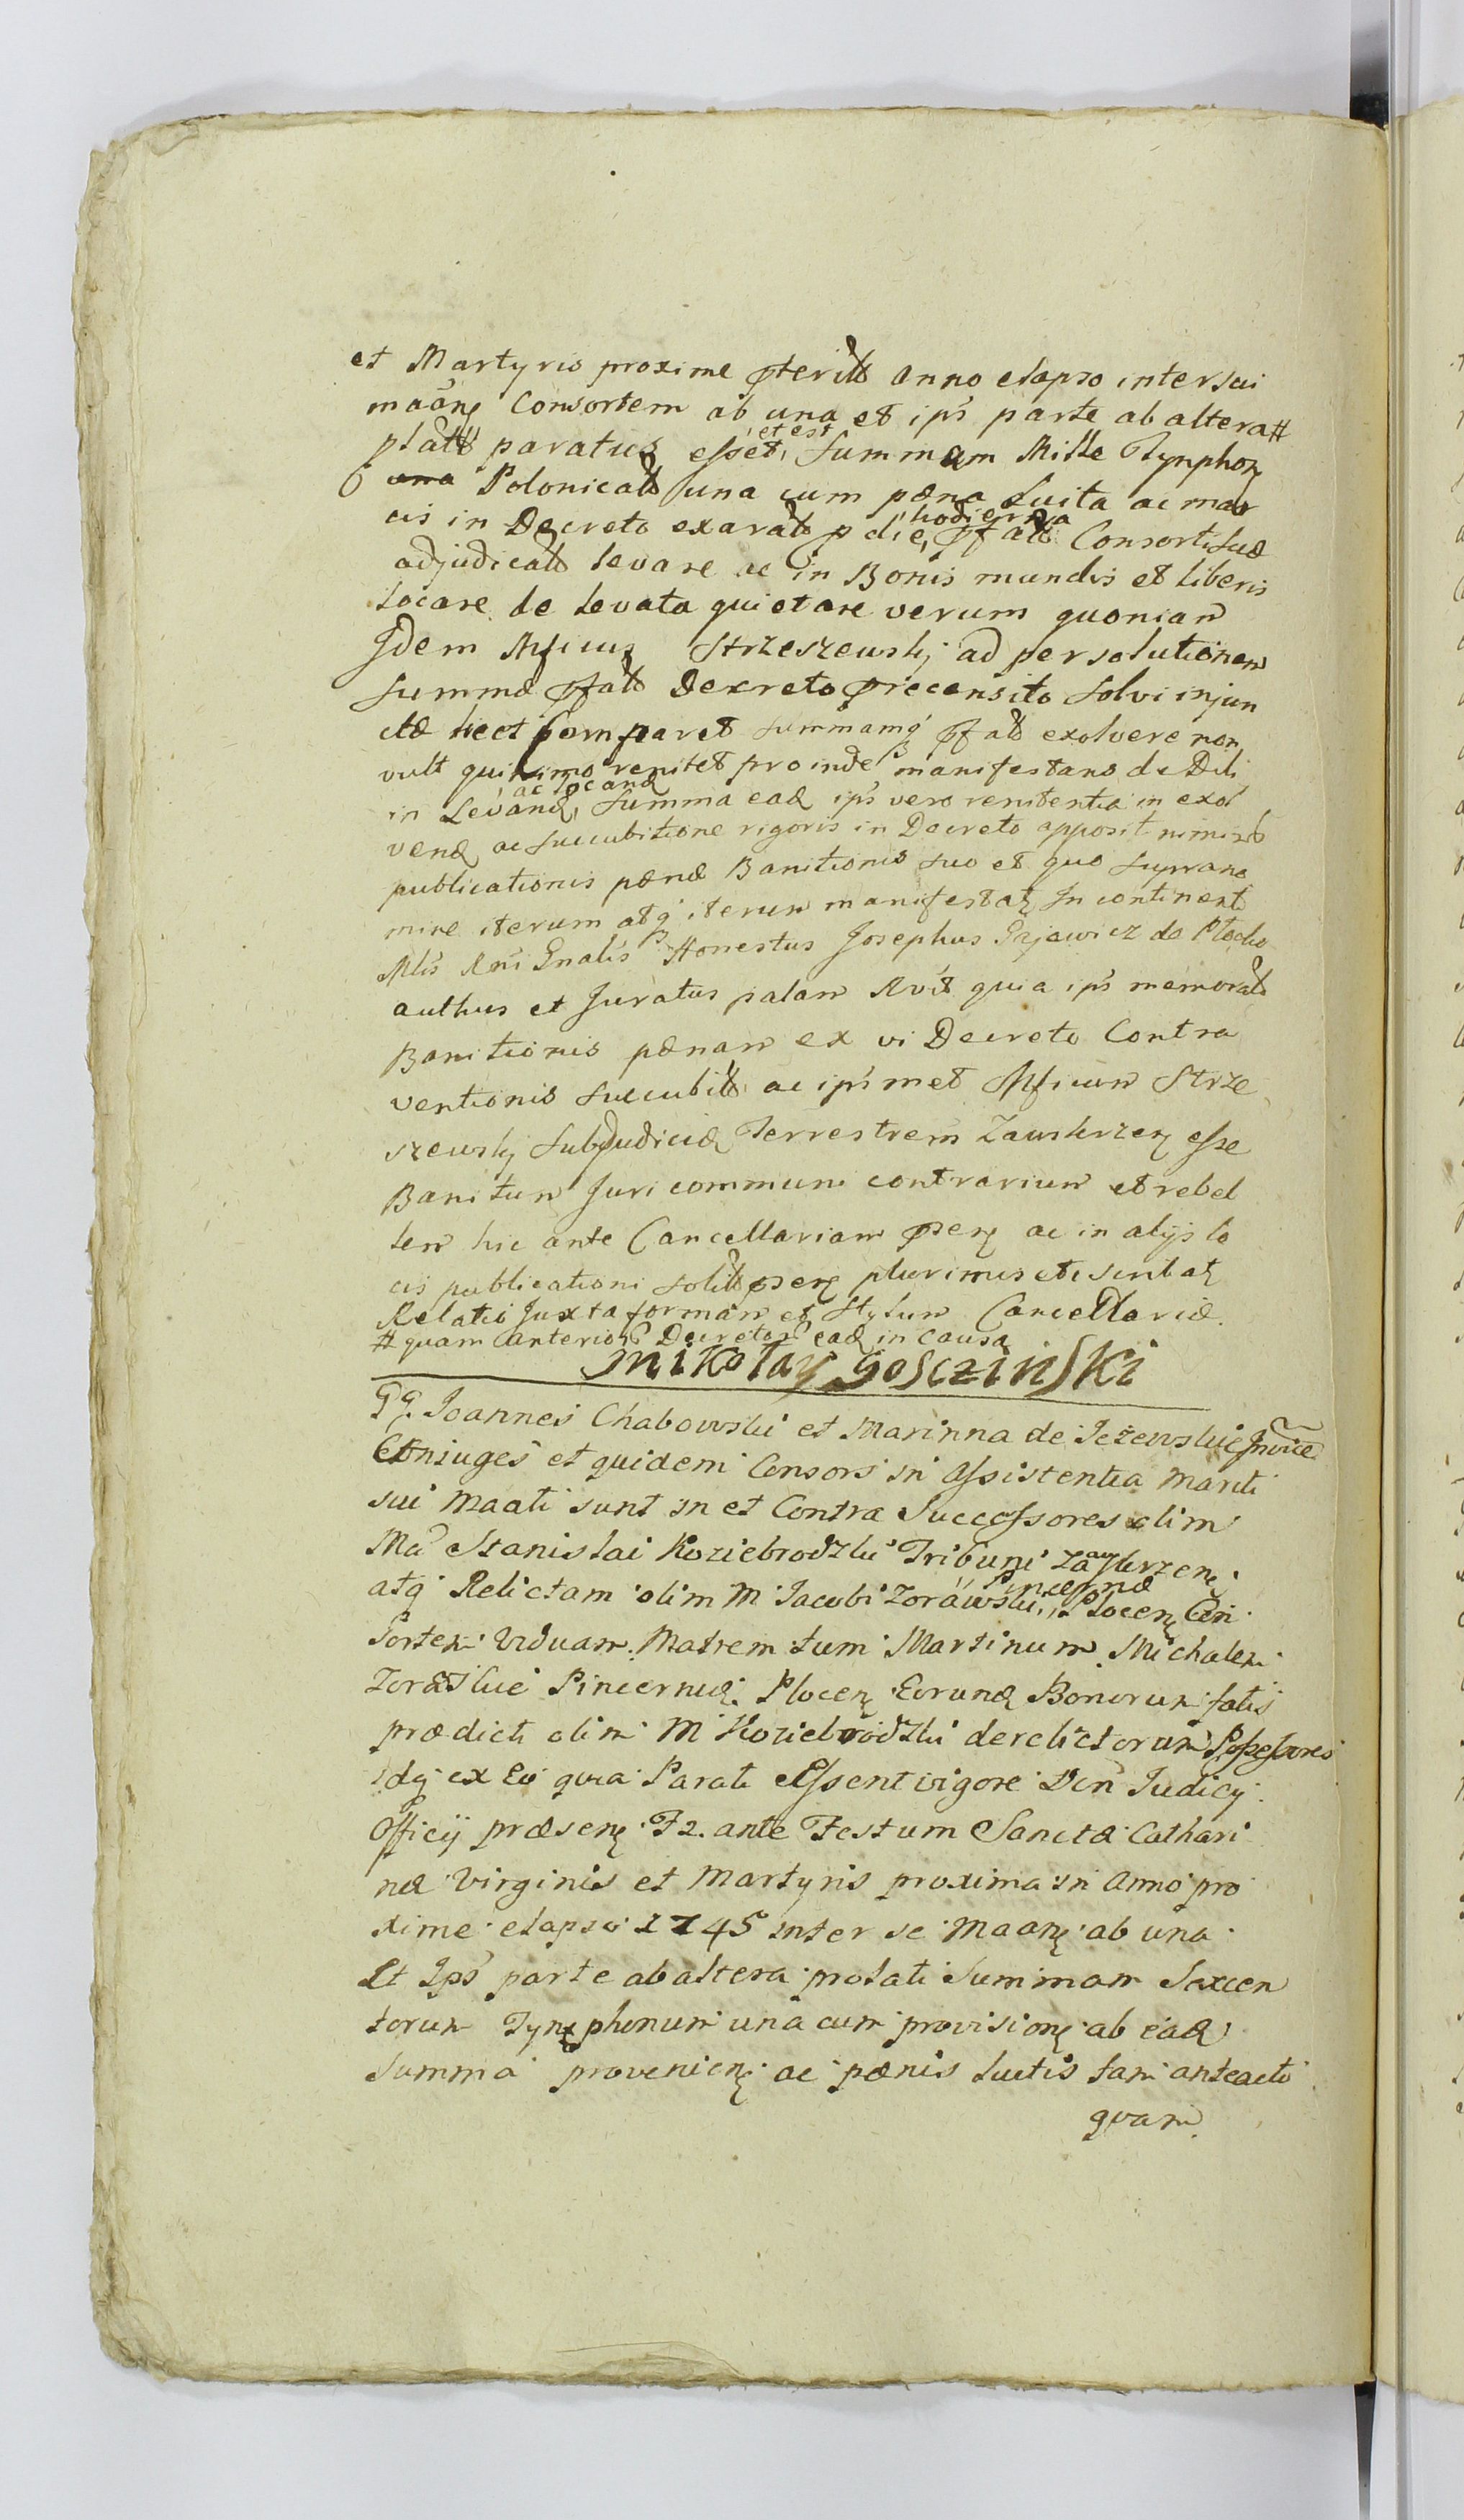 et Martyris proxime pterito anno elapso inter sui
maane Consortem ab una et ips parte ab altera #
plato paratus esset, et est Summam Mille Tynphor
Polonical una cum pæna Luita ac mar
cis in Decreto exarato p die, hodierna pfato Consorti suæ
adjudicato levare ac in Bonis mundis et liberis
locare de levata quietare verum quoniam
Idem Mficus Strzeszewsky ad persolutionem
Summæ pfato Decreto precensito solvi injun
ctæ licet Comparet summamq pfato exolvere non
vult quinimo renitet proinde manifestans de Dili
in Levand, ac locand Summa ead ips vero renitentia in exol
vend ac succubitione rigoris in Decreto apposit nimirū
publicationis pænæ Banitionis suo et quo supra no
mine iterum atq iterum manifestat In continenti
Mlis Rni Gnalis Honestus Josephus Gajewicz de Plocko
authus et Juratus palam Rvit quia ips memorato
Banitionis pænam ex vi Decreto Contra
ventionis succubito ac ipsmet Mficum Strze
szewsky Subjudicem Terrestrem Zawskrzen esse
Banitum Juri communi contrarium et rebel
lem hic ante Cancellariam psen ac in alys lo
cis publicationi solito psen plurimis et scribat
Relatio Juxta formam et Stylum Cancellariæ.
# quam anterior Decretor ead in causa
Mikołay Gosczinski
GG. Joannes Chabowski et Marinna de Jeżewskie Invice
Coniuges et quidem Consors in Assistentia Mariti
sui Maati sunt in et Contra Successores olim
M Stanislai Koziebrodzki Tribuni Zawskrzen
atq Relictam olim M Jacobi Zorawski, Pincernæ Plocen Con
sortem Viduam. Matrem tum Martinum Michalem
Zorawskie Pincernid. Plocen Eorund Bonorum fatis
prædicti olim M Koziebrodzki derelictorum Possessores
Idq ex Eo quia Parati Essent vigore Dcri Judicy
Officÿ præsen F 2. ante Festum Sanctæ Cathari
næ Virginis et Martyris proxima in Anno pro
xime elapso 1745 inter se Maane ab una
Et Ips parte ab altera prolati Summam Sexcen
torum Tynphonum una cum provisione ab ead
Summa provenien ac pænis luitis tam anteacto
quam